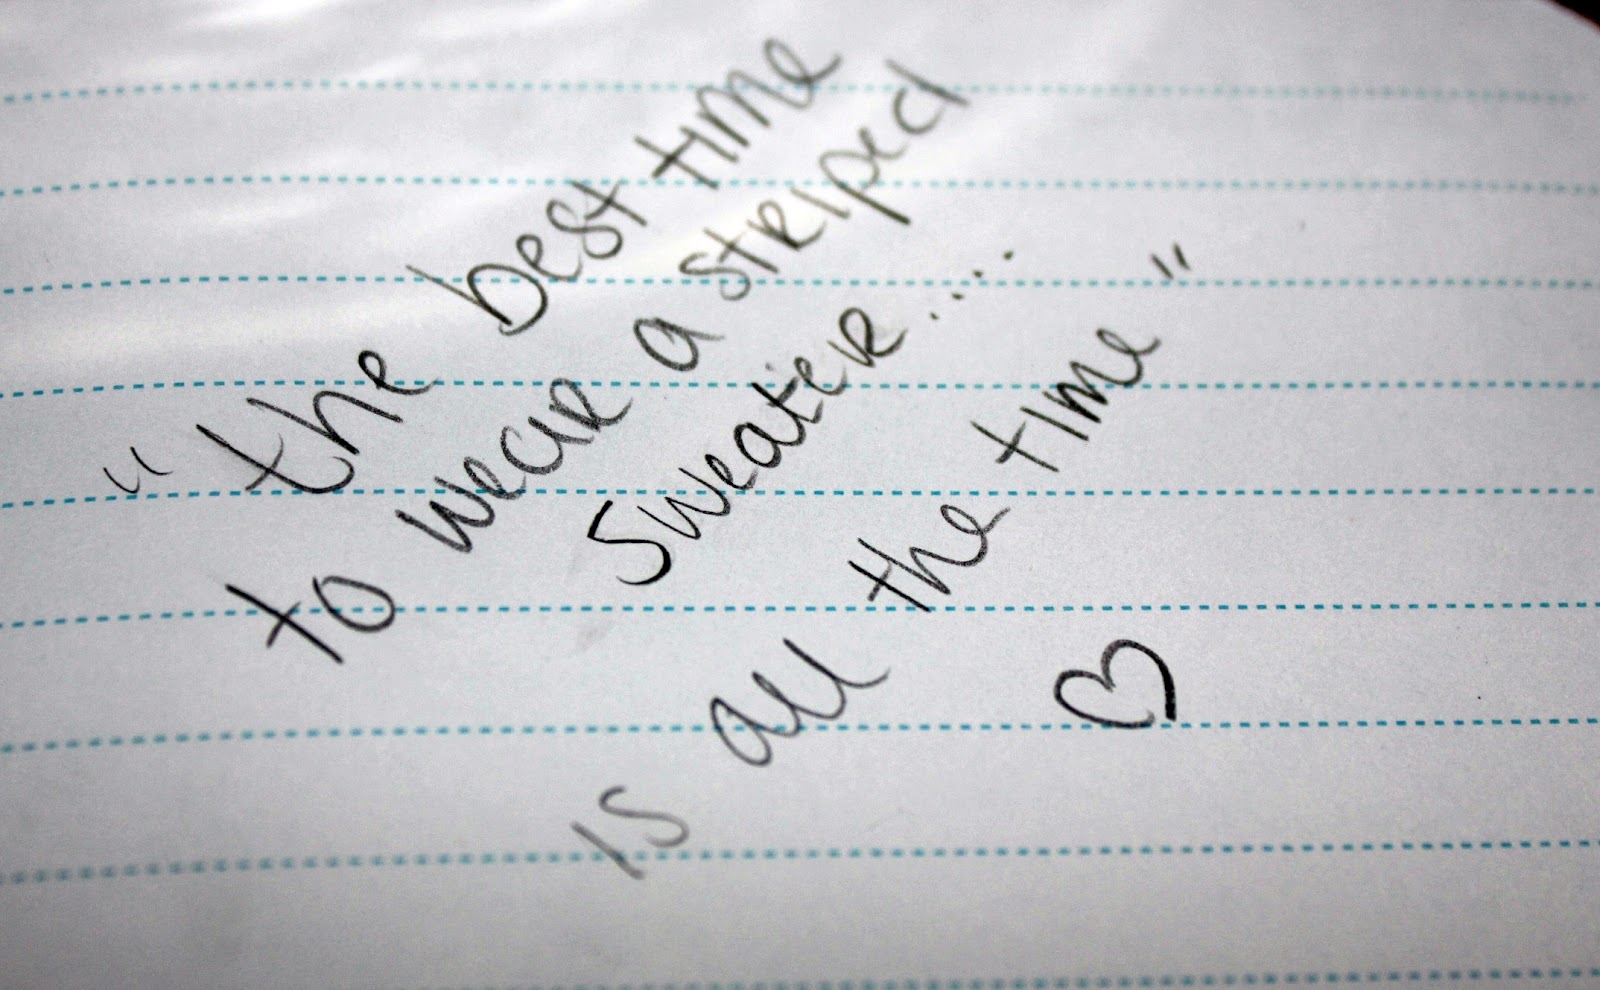 "the best time
to wear a striped
sweater....
is all the time"